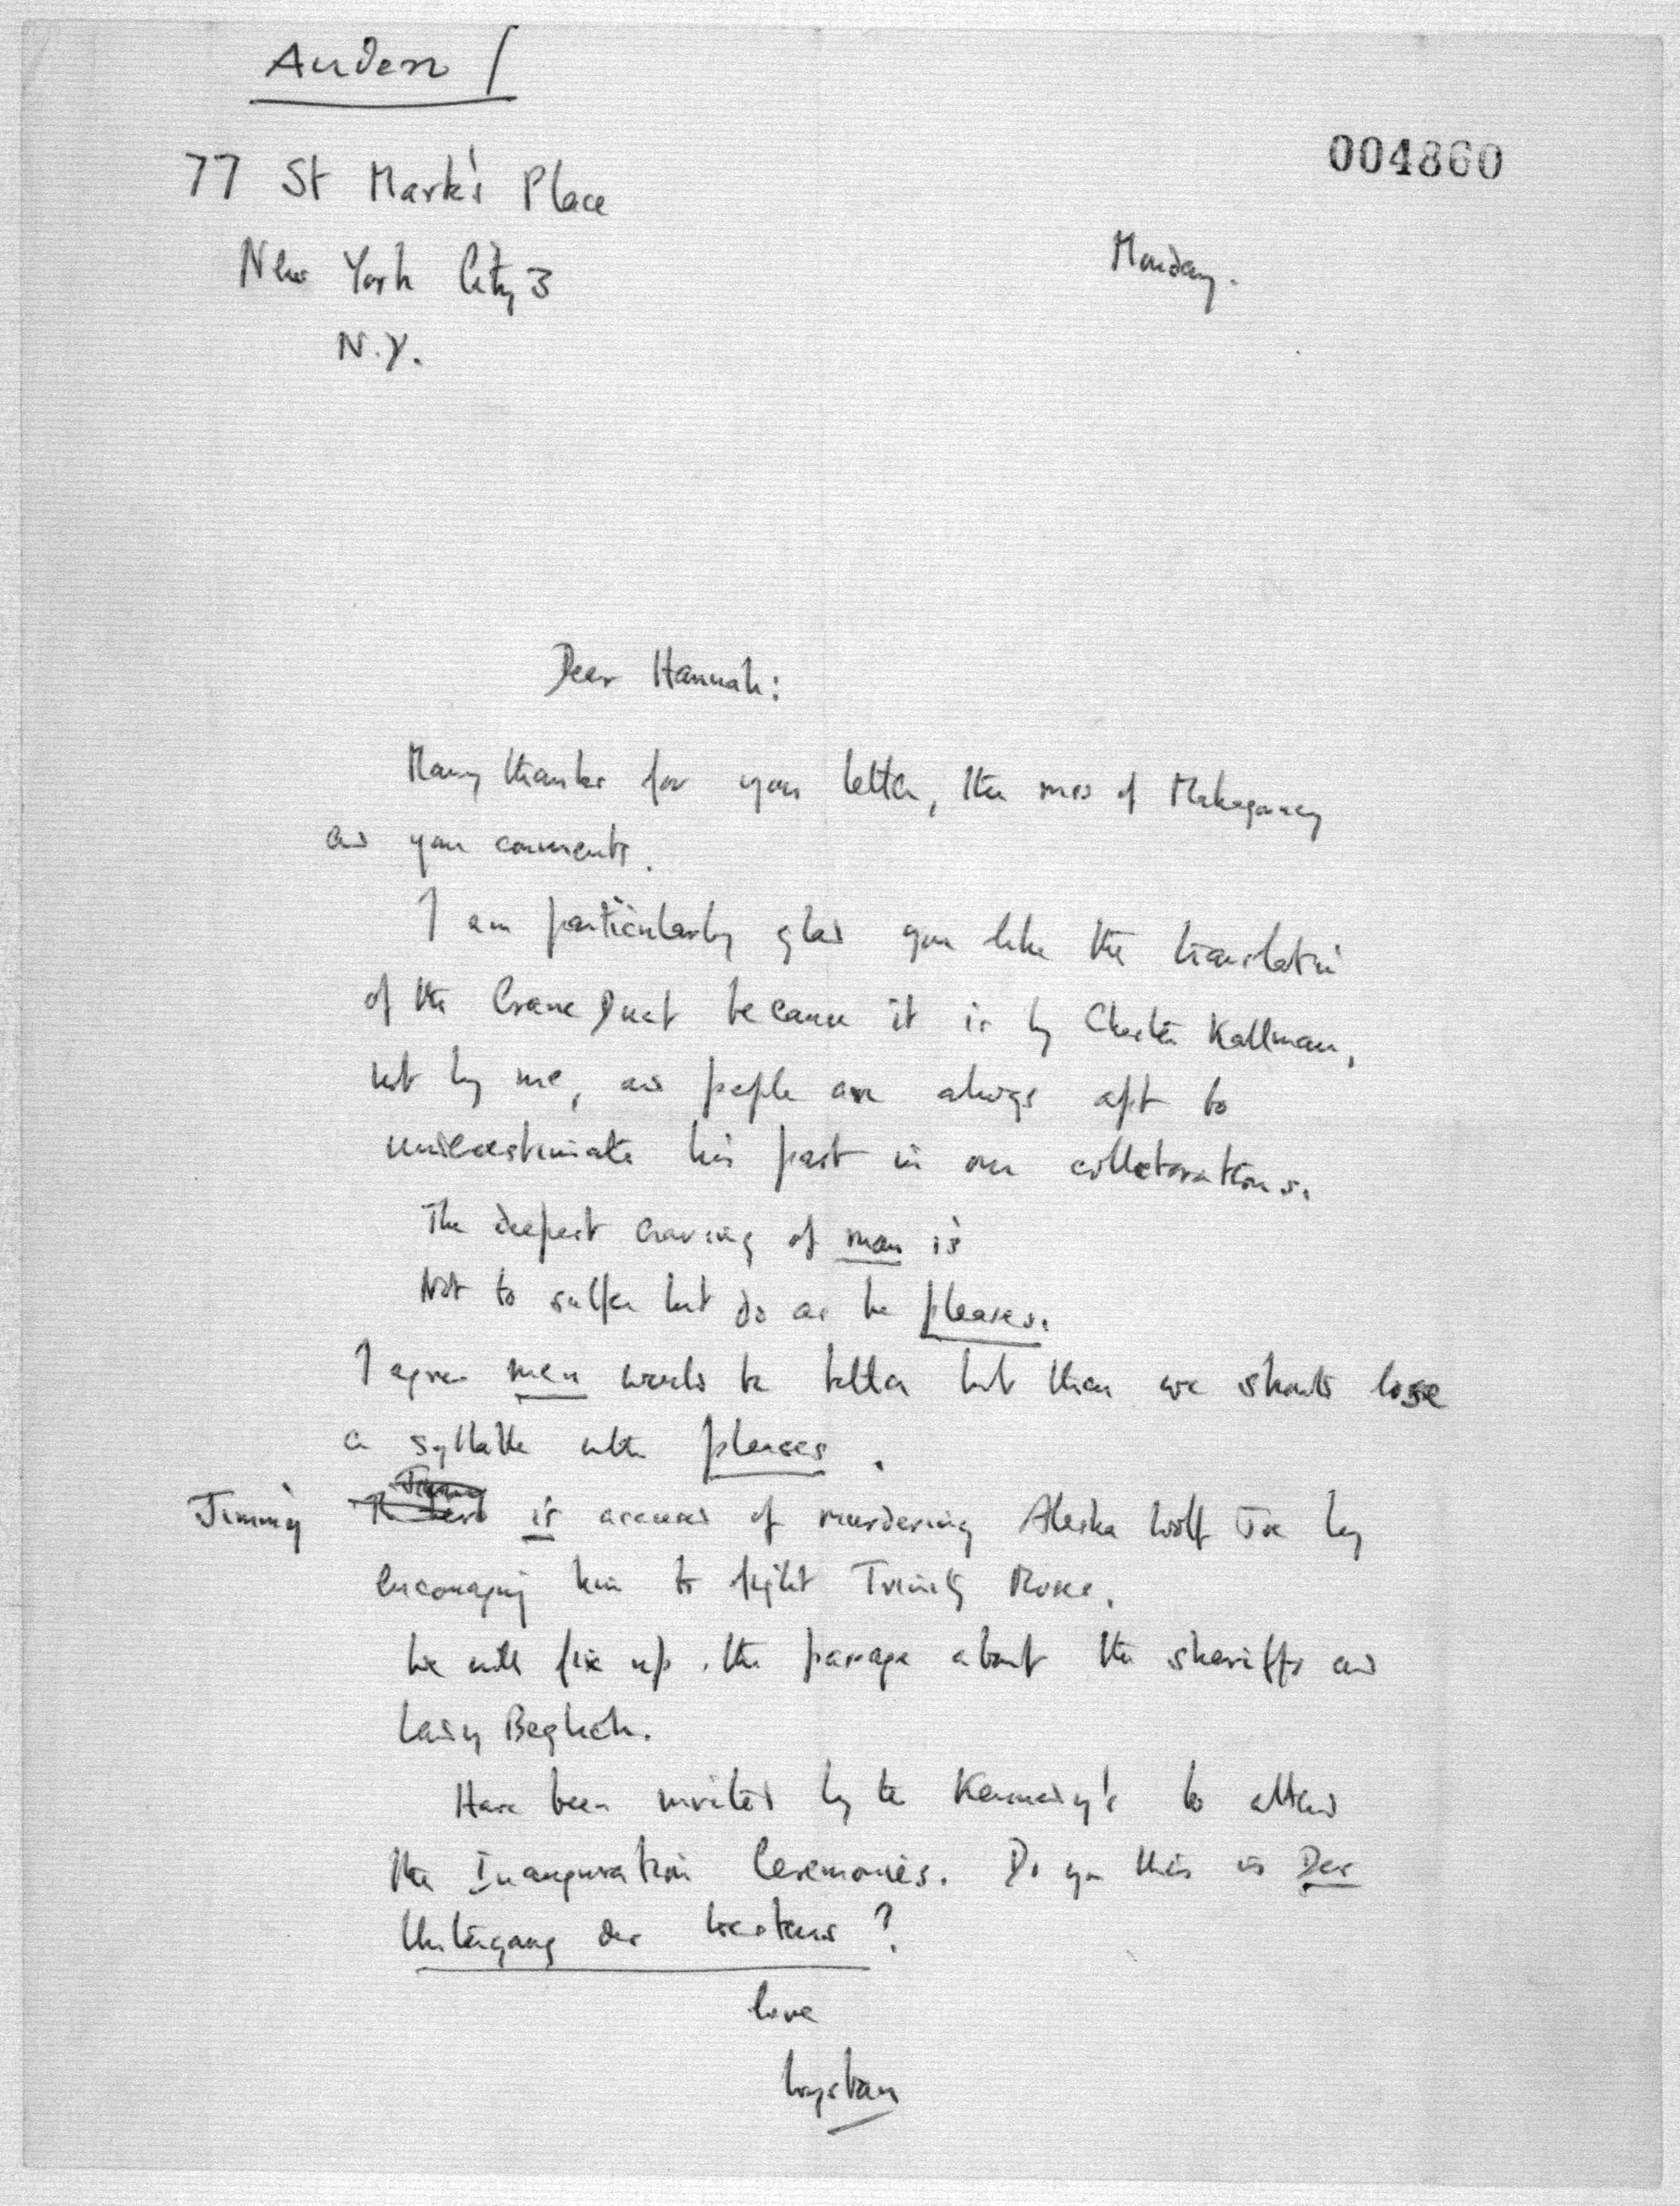 Auden /
77 St Mark's Place
004860
New York City 3
Monday.
N.Y.
Dear Hannah:
Many thanks for your letter, the mss of Mahagonny
and your comments.
I am particularly glad you like the translation
of the Crane Duet because it is by Chester Kallman,
not by me, and people are always apt to
underestimate his part in our collaborations.
The deepest craving of man is
Not to suffer but do as he pleases.
I agree men would be better but then we should lose
a syllable with pleases.
Jimmy is accused of murdering Alaska Wolf Joe by
encouraging him to fight Trinity Moses.
We will fix up the passage about the sheriffs and
Lady Begbick.
Have been invited by the Kennedy's to attend
the Inauguration Ceremonies. Do you think is Der
Untergang des Westens?
love
Wystan